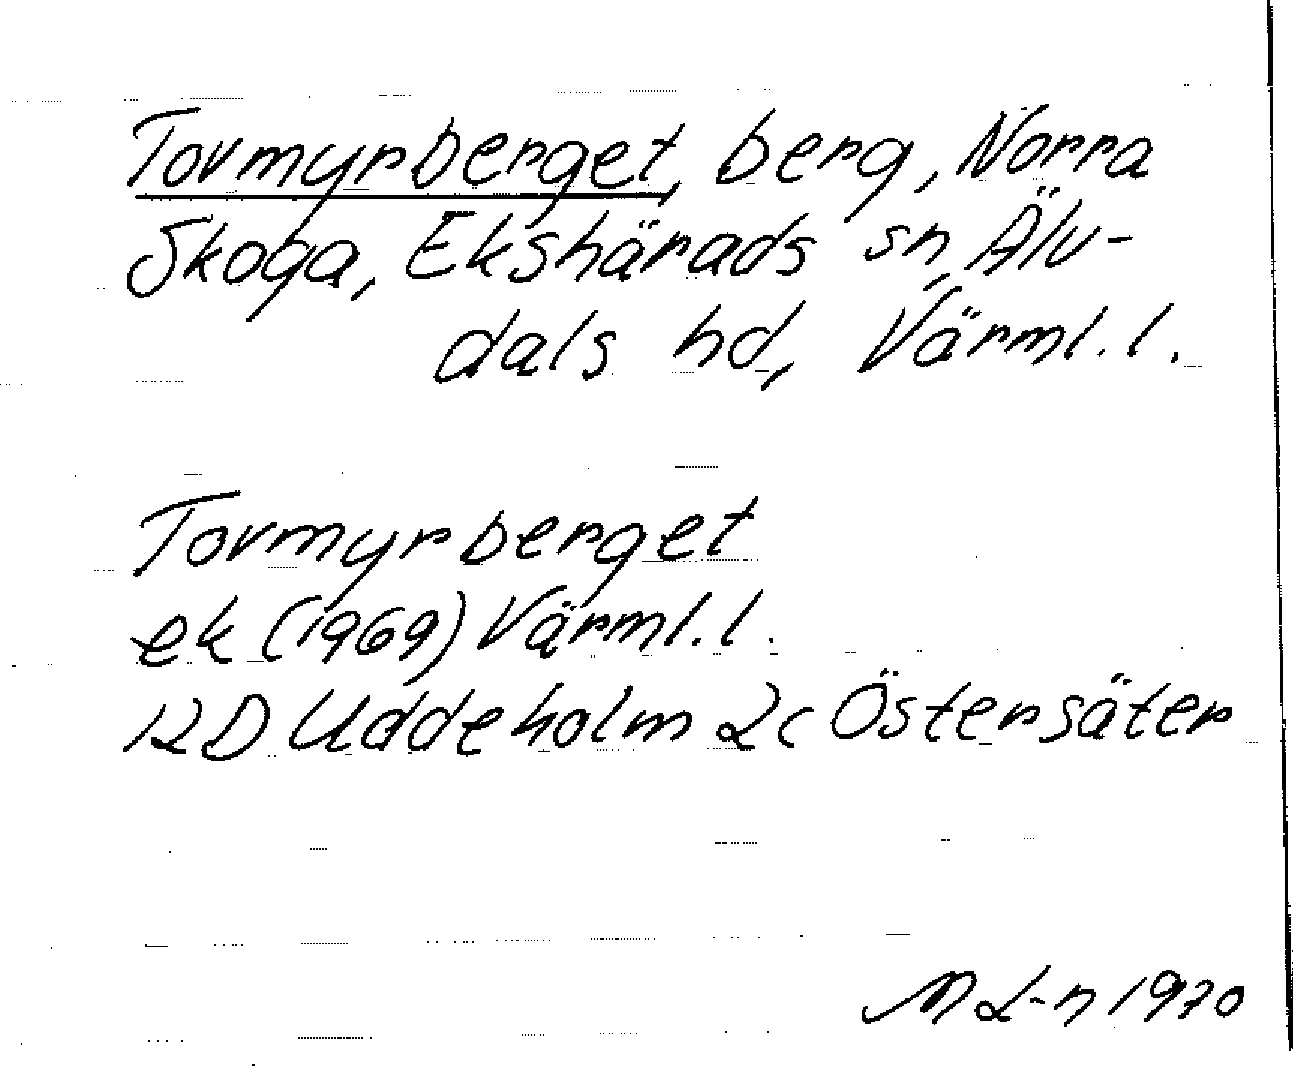 Tormyrberget, berg, Norra
Skoga, Ekshärads sn, Älv-
dals hd, Värml. l.
Tormyrberget
ek (1969) Värml. l.
12D Uddeholm 2c Östersäter
M L-n 1970